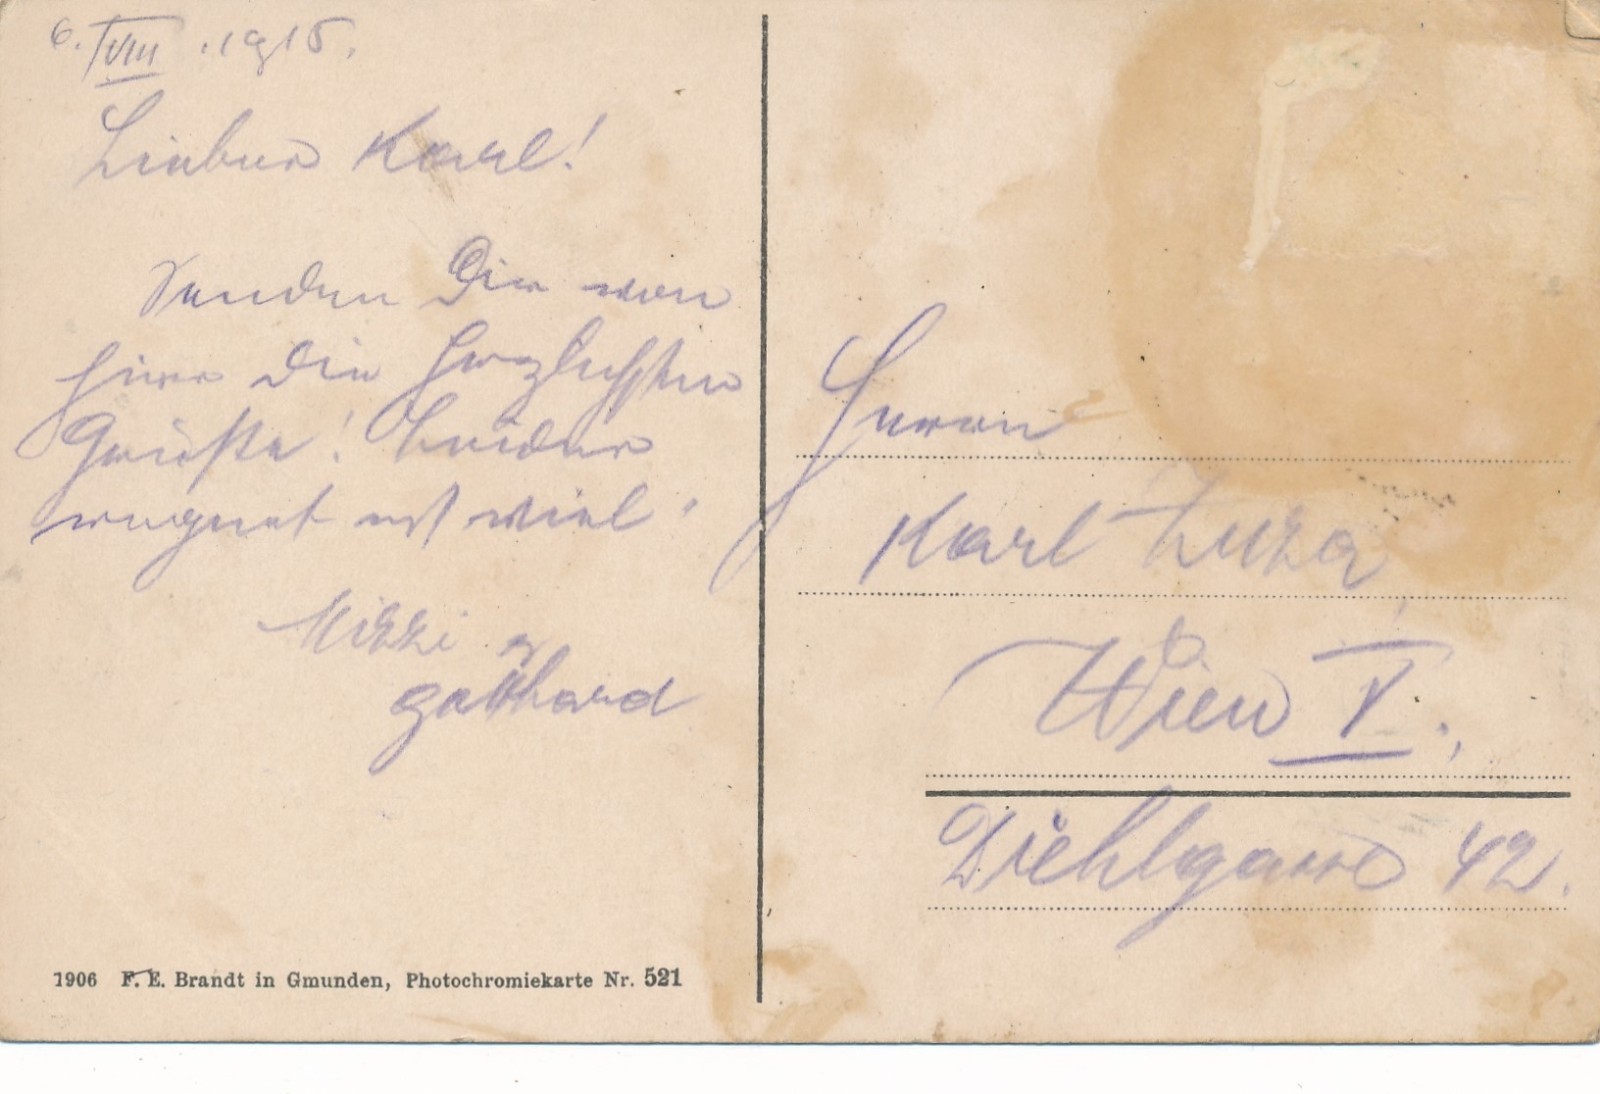 6. VIII. 1915.
Lieber Karl!
Senden Dir von
hier die herzlichsten
Grüße! Leider
regnet es viel.
Mizzi &
Gotthard
Herrn
Karl
Wien V.,
Diehlgasse 42.
1906 F. E. Brandt in Gmunden, Photochromiekarte Nr. 521